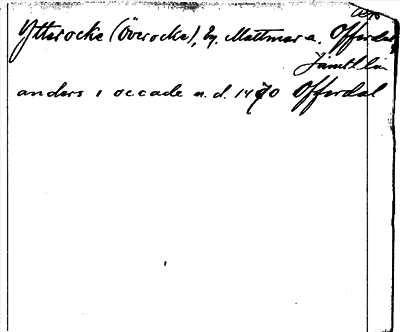 Ytterocke (Överocke), by, Mattmar s. Offerdal
Jämtl. län
anders i occade n. d. 1470 Offerdal